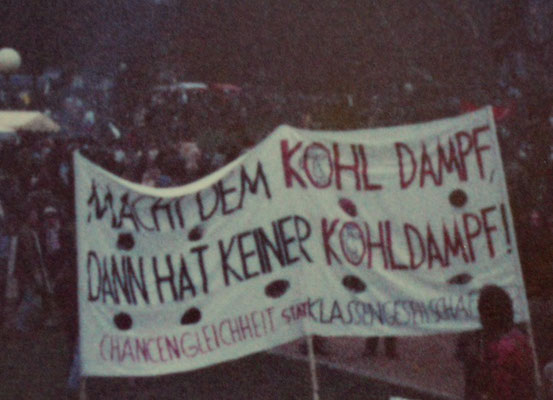 MACHT DEM KOHL DAMPF,
DANN HAT KEINER KOHLDAMPF!
CHANCENGLEICHHEIT STATT